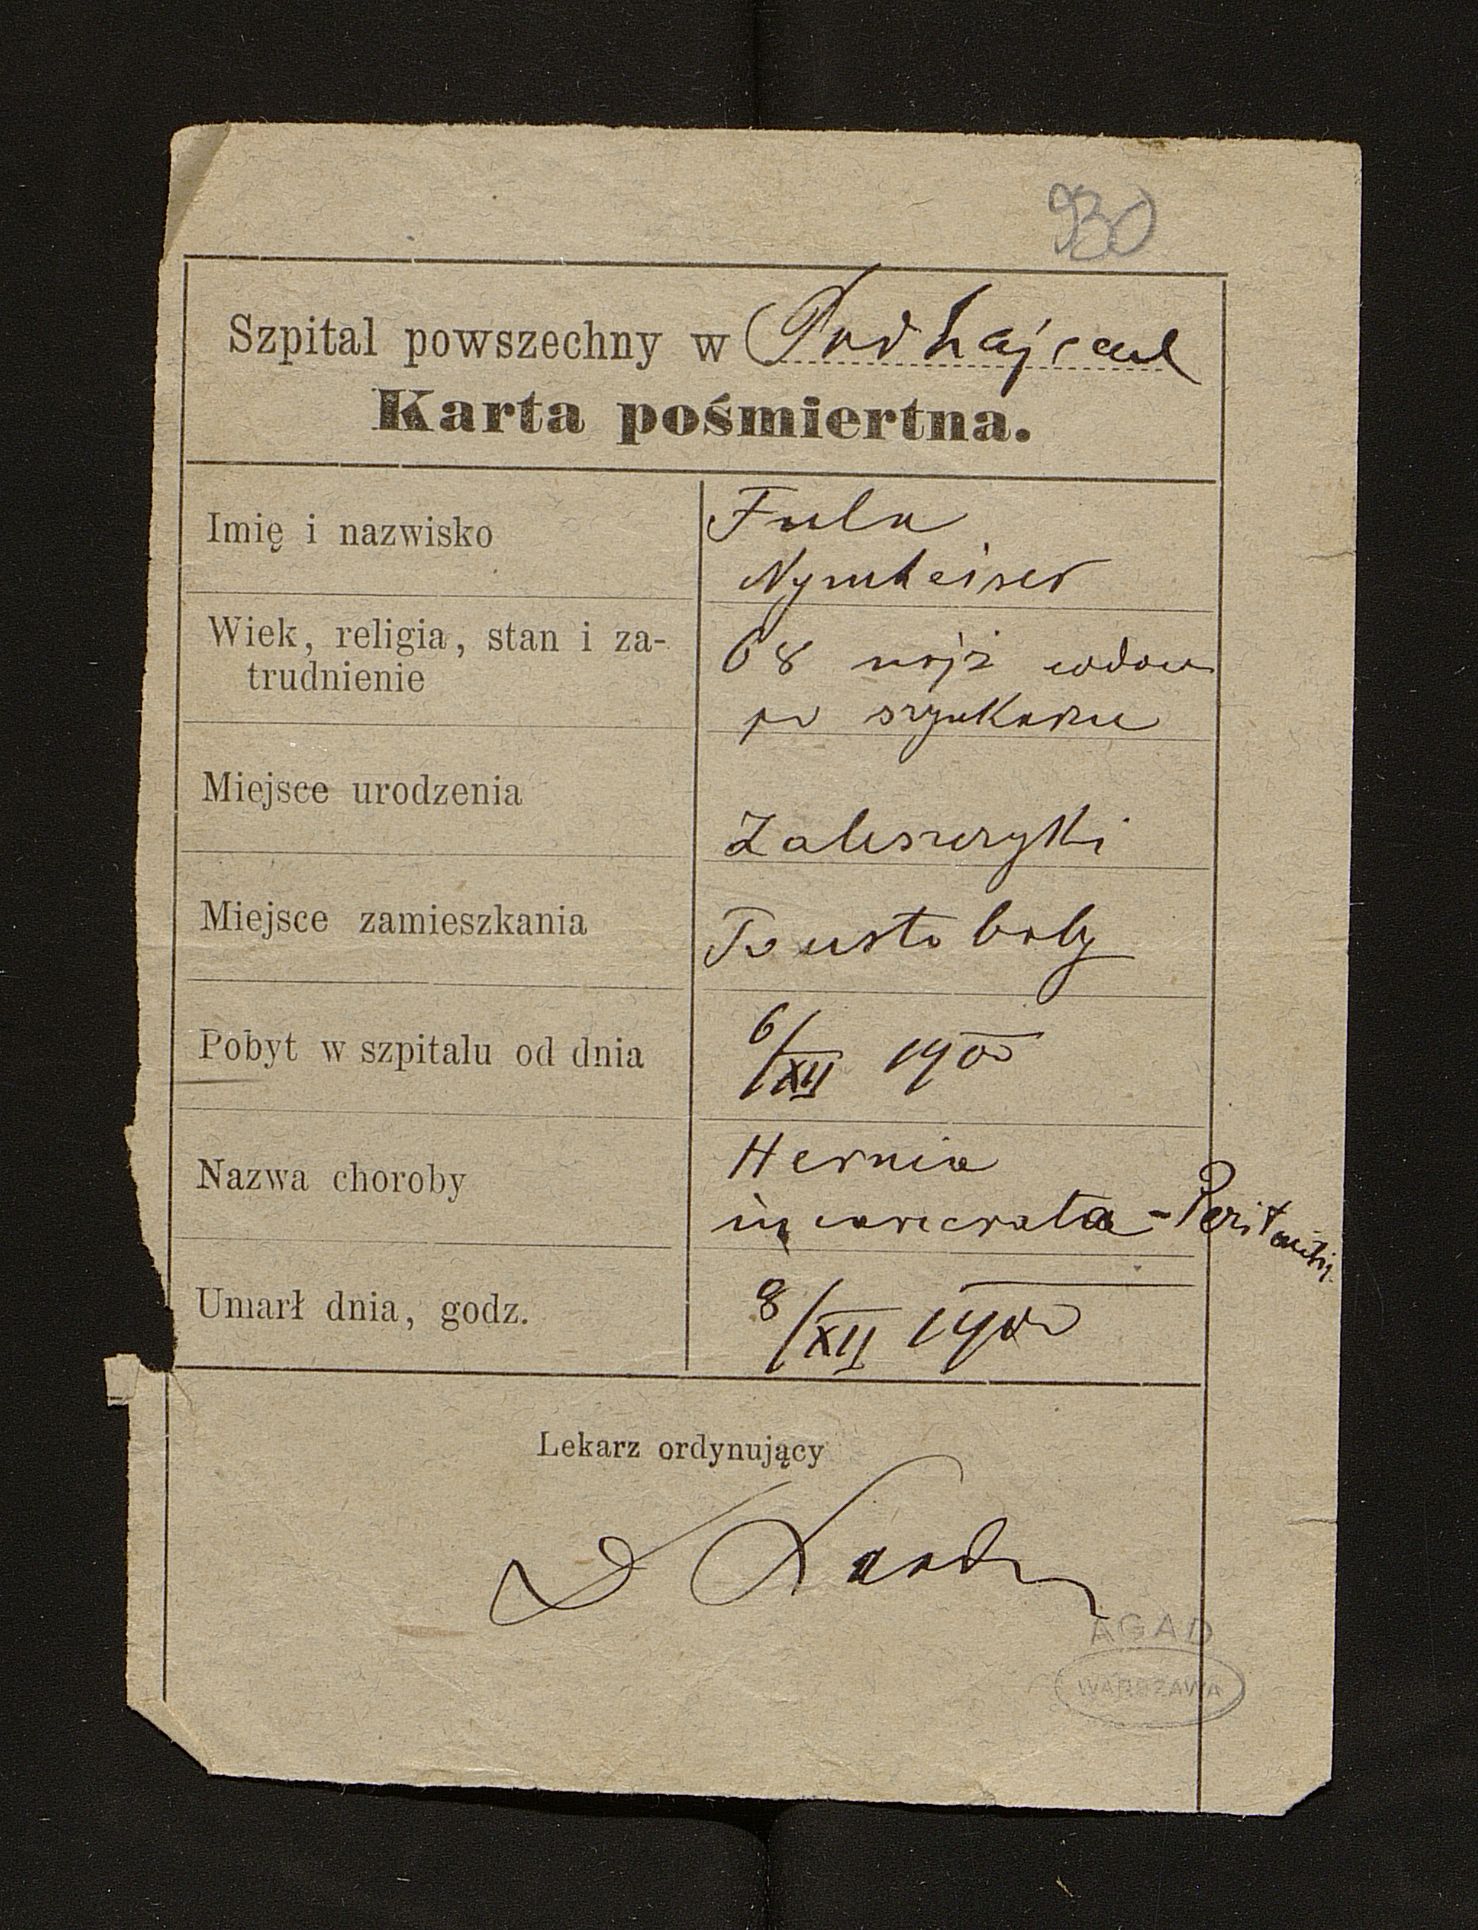 930
Szpital powszechny w Podhajcach
Karta pośmiertna.
Imię i nazwisko
Wiek, religia, stan i za-
trudnienie
68 mojż wdowa
po szynkarzu
Miejsce urodzenia
Zaleszczyki
Miejsce zamieszkania
Toustobaby
Pobyt w szpitalu od dnia
6/XII 1900
Nazwa choroby
Hernia
incarcerata - Peritonitis.
Umarł dnia, godz.
8/XII 1900
Lekarz ordynujący
AGAD
WARSZAWA